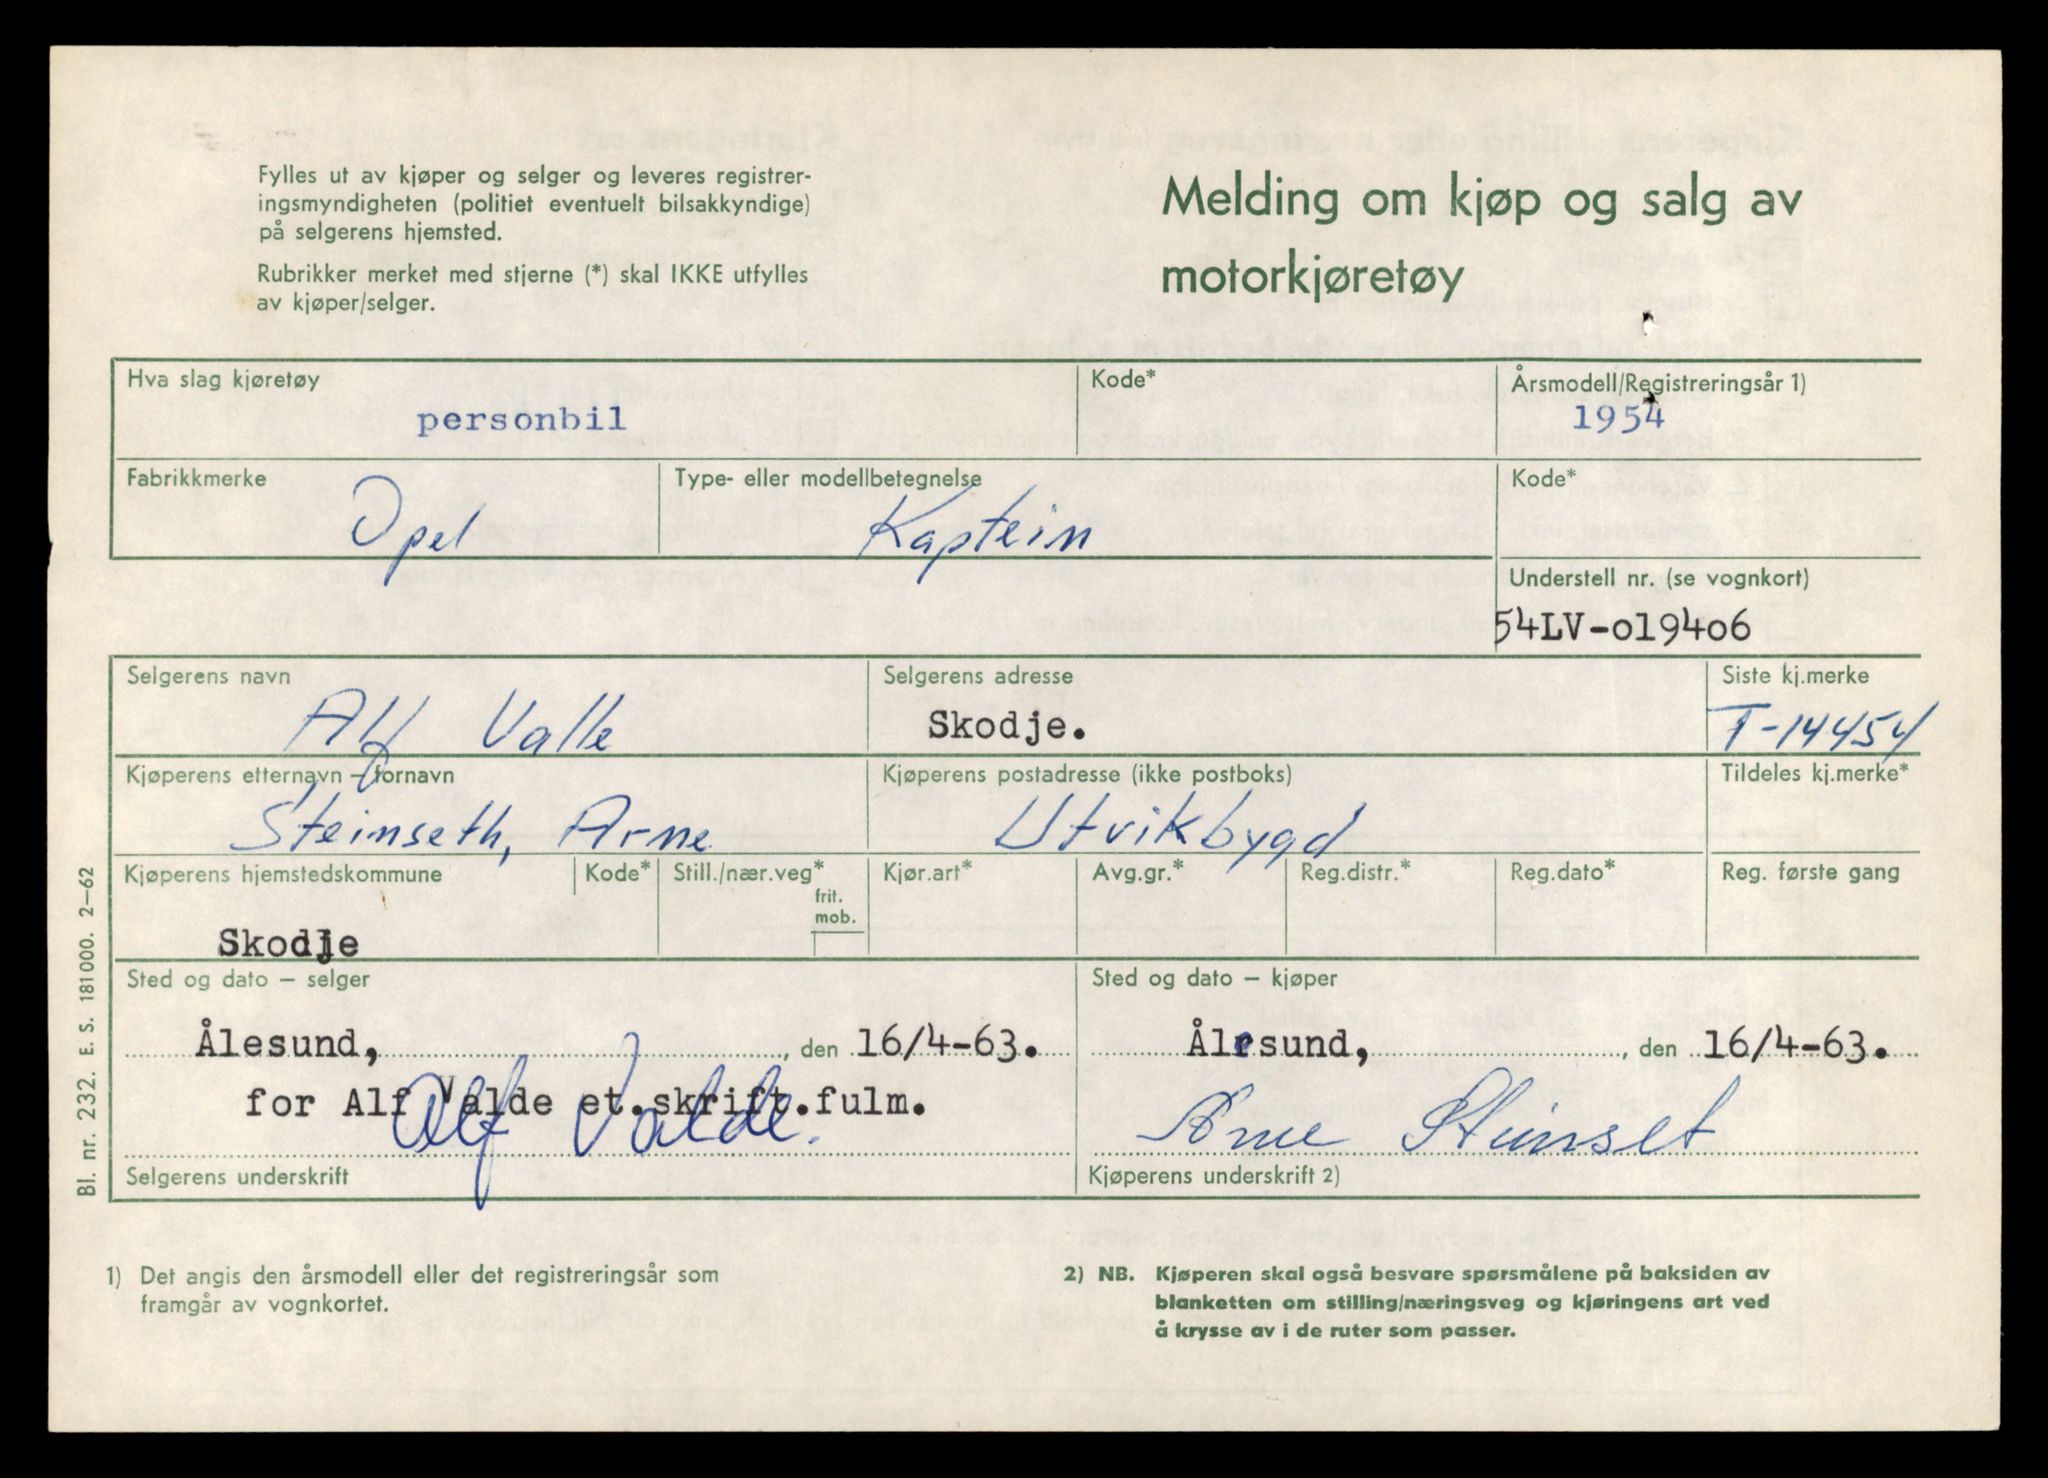 Fylles ut av kjøper og selger og leveres registrer-
ingsmyndigheten (politiet eventuelt bilsakkyndige)
på selgerens hjemsted.
Rubrikker merket med stjerne (*) skal IKKE utfylles
av kjøper/selger.
Melding om kjøp og salg av
motorkjøretøy
Hva slag kjøretøy Kode* Årsmodell/Registreringsår 1)
personbil 1954
Fabrikkmerke Type- eller modellbetegnelse Kode*
Opel Kaptein
Understell nr. (se vognkort)
54LV-019406
Selgerens navn Selgerens adresse Siste kj.merke
Alf Valle Skodje. T-14454
Kjøperens etternavn – fornavn Kjøperens postadresse (ikke postboks) Tildeles kj.merke*
Steinseth, Arne Utvikbygd
Kjøperens hjemstedskommune Kode* Still./nær.veg* Kjør.art* Avg.gr.* Reg.distr.* Reg.dato* Reg. første gang
frit.
mob.
Skodje
Sted og dato – selger Sted og dato – kjøper
Ålesund, , den 16/4-63. Ålesund, , den 16/4-63.
for Alf Valde et.skrift.fulm.
Alf Valde. Arne Steinset
Selgerens underskrift Kjøperens underskrift 2)
Bl. nr. 232. E. S. 181000. 2–62
1) Det angis den årsmodell eller det registreringsår som
framgår av vognkortet.
2) NB. Kjøperen skal også besvare spørsmålene på baksiden av
blanketten om stilling/næringsveg og kjøringens art ved
å krysse av i de ruter som passer.